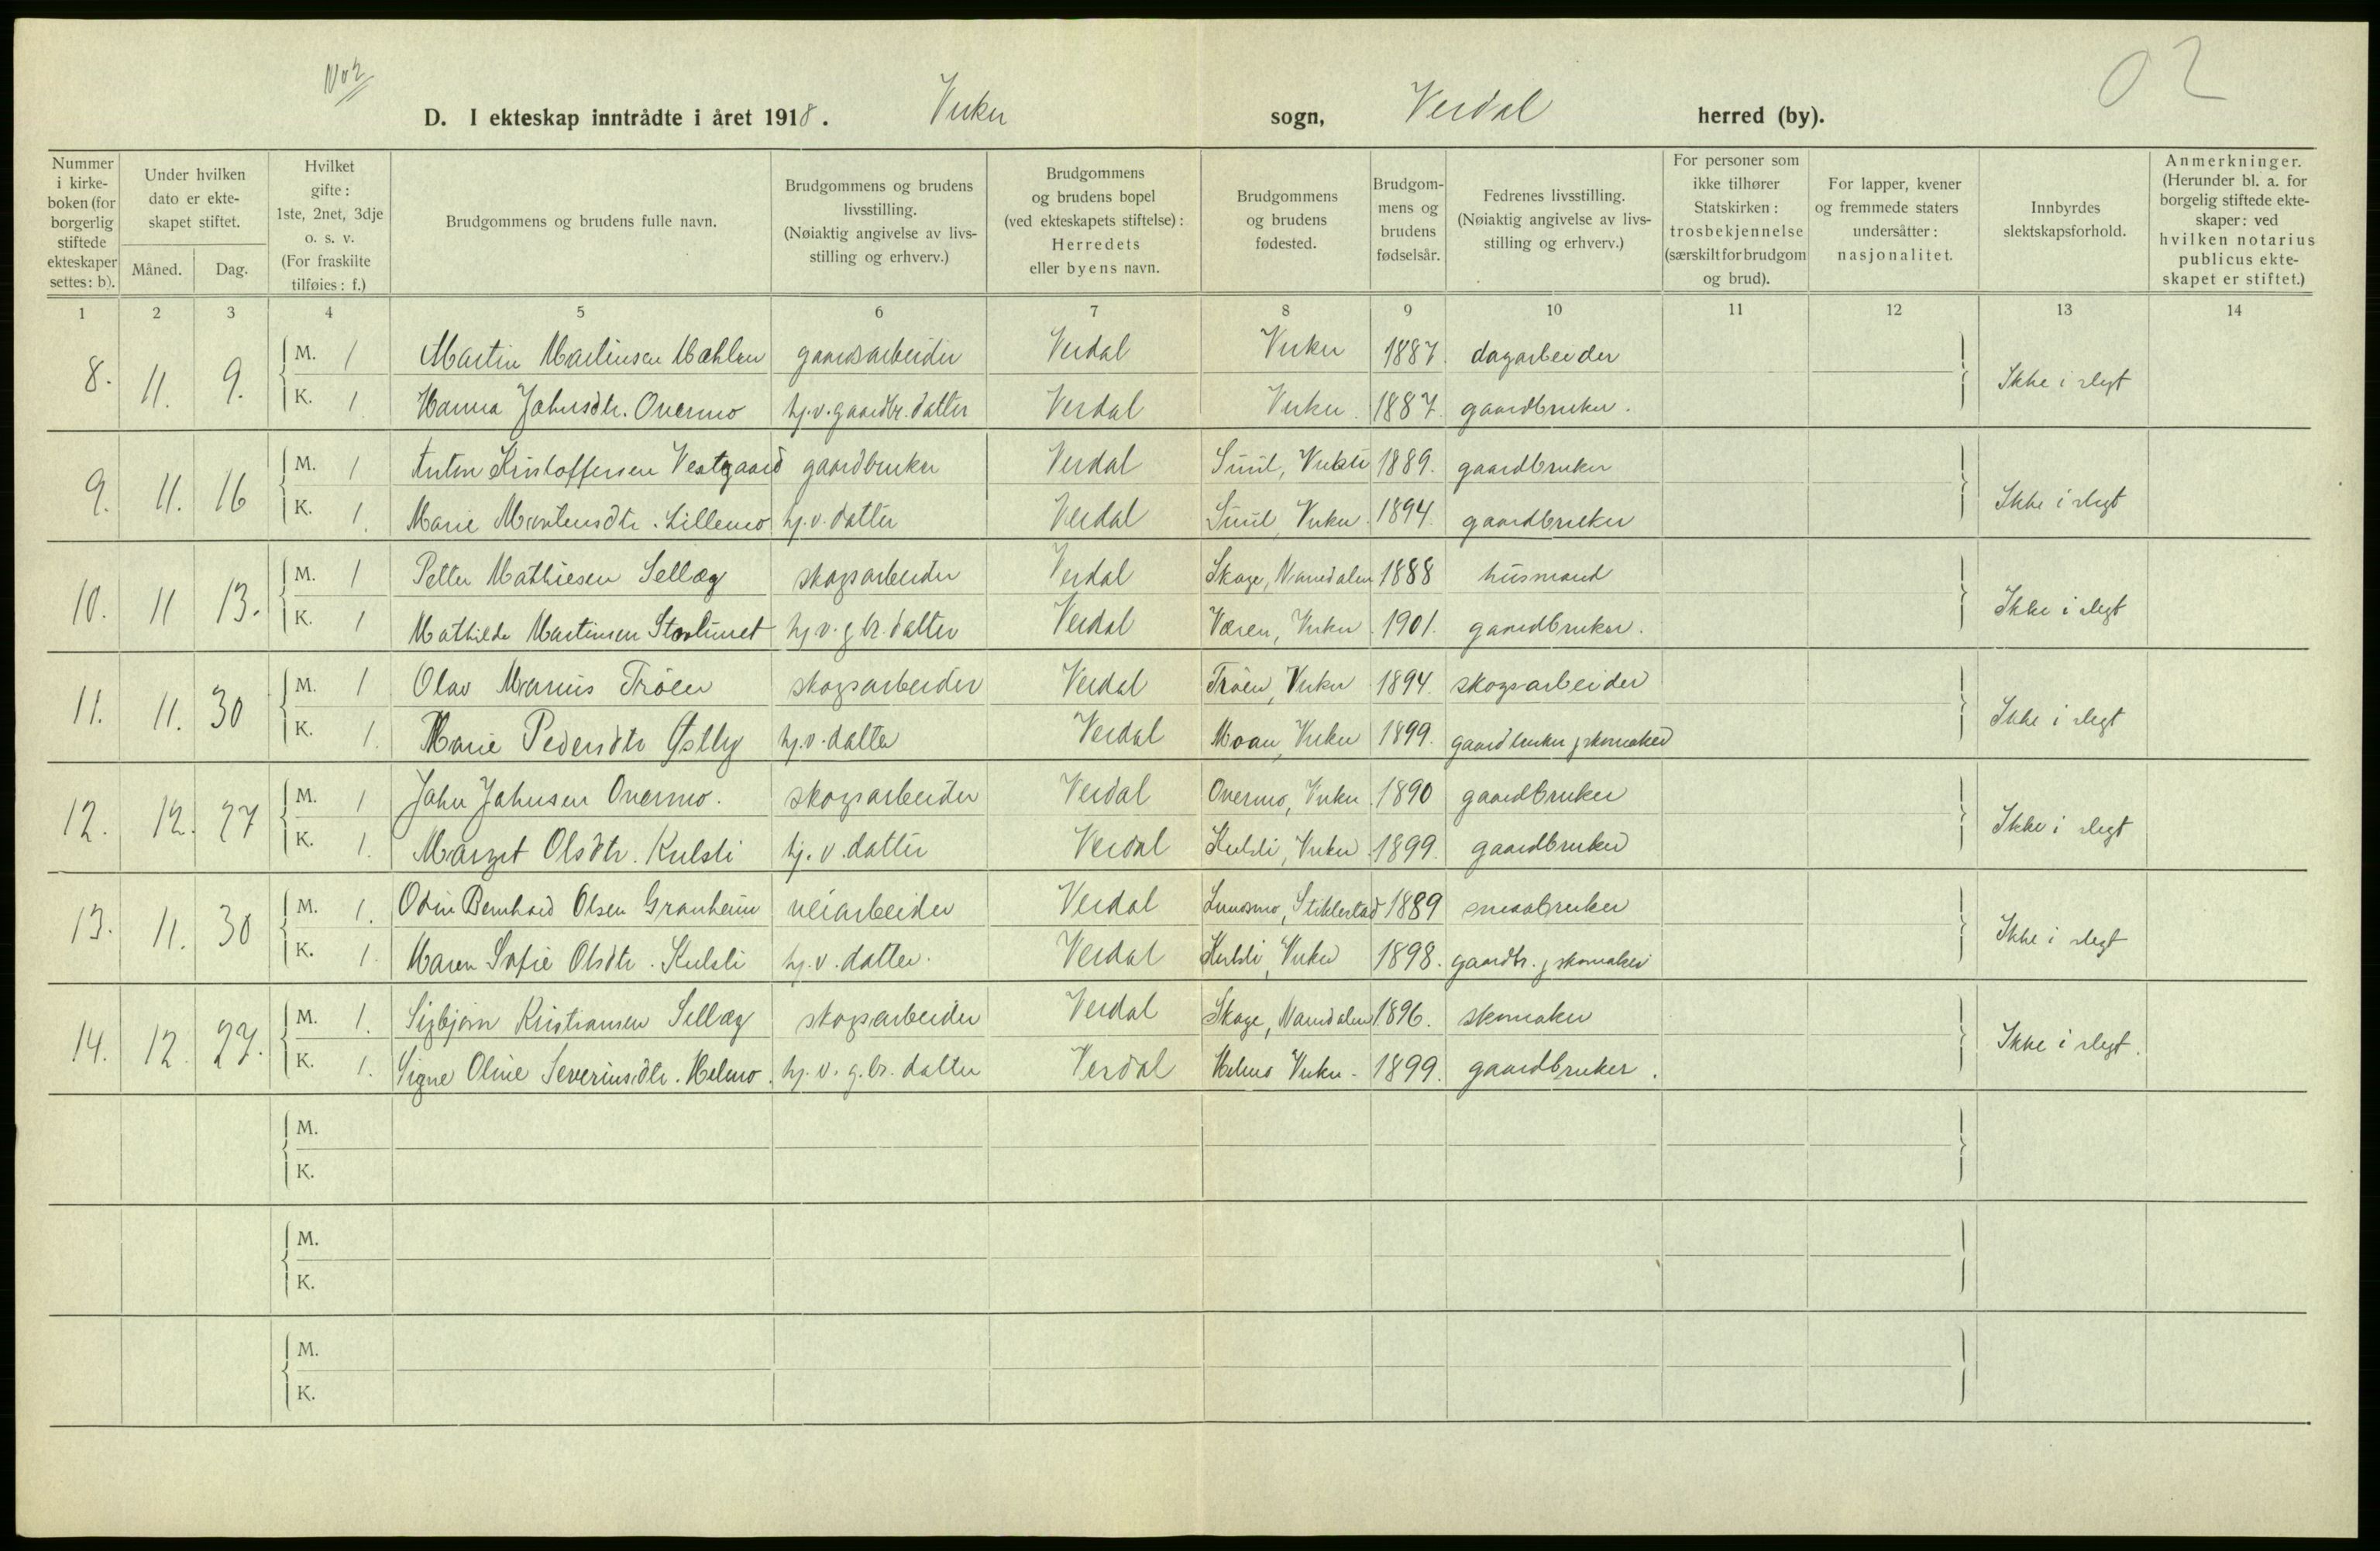 No 2
02
D. I ekteskap inntrådte i året 1918. Vuku sogn, Verdal herred (by).
Nummer i kirkeboken (for borgerlig stiftede ekteskaper settes: b).
Under hvilken dato er ekteskapet stiftet.
Måned. Dag.
Hvilket gifte: 1ste, 2net, 3dje o. s. v. (For fraskilte tilføies: f.)
Brudgommens og brudens fulle navn.
Brudgommens og brudens livsstilling. (Nøiaktig angivelse av livsstilling og erhverv.)
Brudgommens og brudens bopel (ved ekteskapets stiftelse): Herredets eller byens navn.
Brudgommens og brudens fødested.
Brudgommens og brudens fødselsår.
Fedrenes livsstilling. (Nøiaktig angivelse av livsstilling og erhverv.)
For personer som ikke tilhører Statskirken: trosbekjennelse (særskilt for brudgom og brud).
For lapper, kvener og fremmede staters undersåtter: nasjonalitet.
Innbyrdes slektskapsforhold.
Anmerkninger. (Herunder bl. a. for borgelig stiftede ekteskaper: ved hvilken notarius publicus ekteskapet er stiftet.)
1 2 3 4 5 6 7 8 9 10 11 12 13 14
8. 11. 9. M. 1 Martin Martinsen Mæhlen gaardsarbeider Verdal Vuku 1887. dagarbeider Ikke i slegt
K. 1 Hanna Johnsdtr. Overmo hj.v. gaardbr. datter Verdal Vuku. 1887. gaardbruker.
9. 11. 16 M. 1 Anton Kristoffersen Vestgaard gaardbruker Verdal Suul, Vuku 1889. gaardbruker Ikke i slegt
K. 1. Marie Martensdtr. Lillemo hj.v. datter Verdal Suul, Vuku. 1894. gaardbruker
10. 11 13. M. 1 Petter Mathiesen Sellæg skogsarbeider Verdal Skage, Namdalen 1888 husmand Ikke i slegt
K. 1 Mathilde Martinsen Storlunet hj.v. g.br. datter Verdal Væren, Vuku 1901. gaardbruker.
11. 11. 30 M. 1 Olav Marius Trøen skogsarbeider Verdal Trøen, Vuku 1894. skogsarbeider Ikke i slegt
K. 1. Marie Pedersdtr Østby hj.v. datter Verdal Moan, Vuku 1899. gaardbruker, skomaker
12. 12. 27 M. 1 John Johnsen Overmo. skogsarbeider Verdal Overmo, Vuku. 1890 gaardbruker Ikke i slegt
K. 1. Marget Olsdtr. Kulsli hj.v. datter Verdal Kulsli, Vuku. 1899. gaardbruker
13. 11. 30 M. 1. Odin Bernhard Olsen Granheim veiarbeider Verdal Stiklestad 1889 gaardbruker Ikke i slegt
K. 1. Maren Sofie Olsdtr. Kulsli hj.v. datter. Verdal Kulsli, Vuku 1898. gaardbr. , skomaker
14. 12. 27. M. 1. Sigbjørn Kristiansen Sellæg skogsarbeider Verdal Skage, Namdalen 1896. skomaker Ikke i slegt.
K. 1. Signe Oline Severinsdtr. Helmo. hj.v. g.br. datter Verdal Helmo Vuku. 1899. gaardbruker.
M.
K.
M.
K.
M.
K.